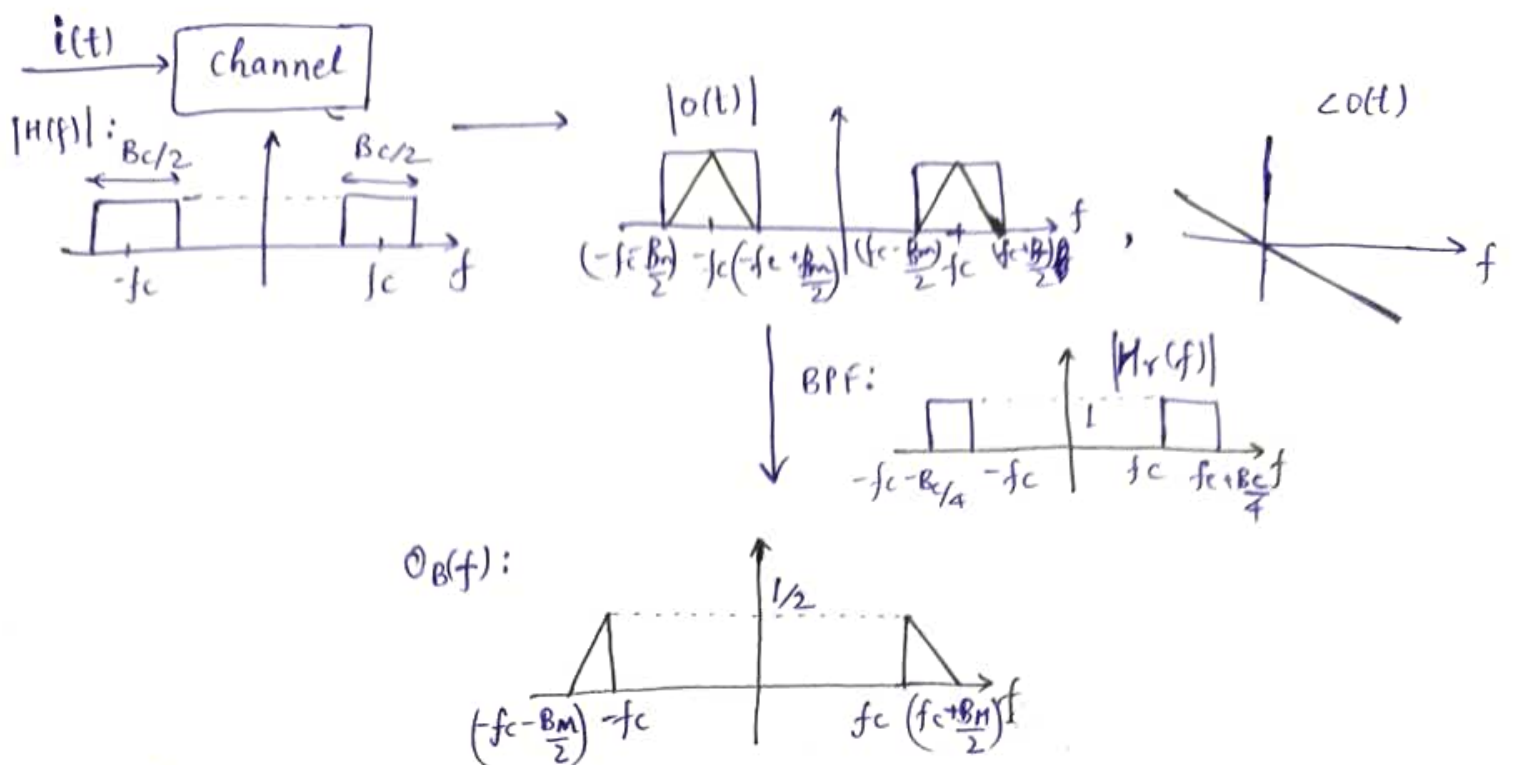 i(t)
Channel
|H(f)|:
Bc/2
Bc/2
-fc
fc
f
|o(t)|
(-fc-Bm/2)
-fc
(-fc+Bm/2)
(fc-Bm/2)
fc
f
,
<o(t)
f
BPF:
|Hr(f)|
1
-fc-Bc/4
-fc
fc
fc+Bc/4
f
OB(f):
1/2
(-fc-BM/2)
-fc
fc
(fc+BM/2)
f